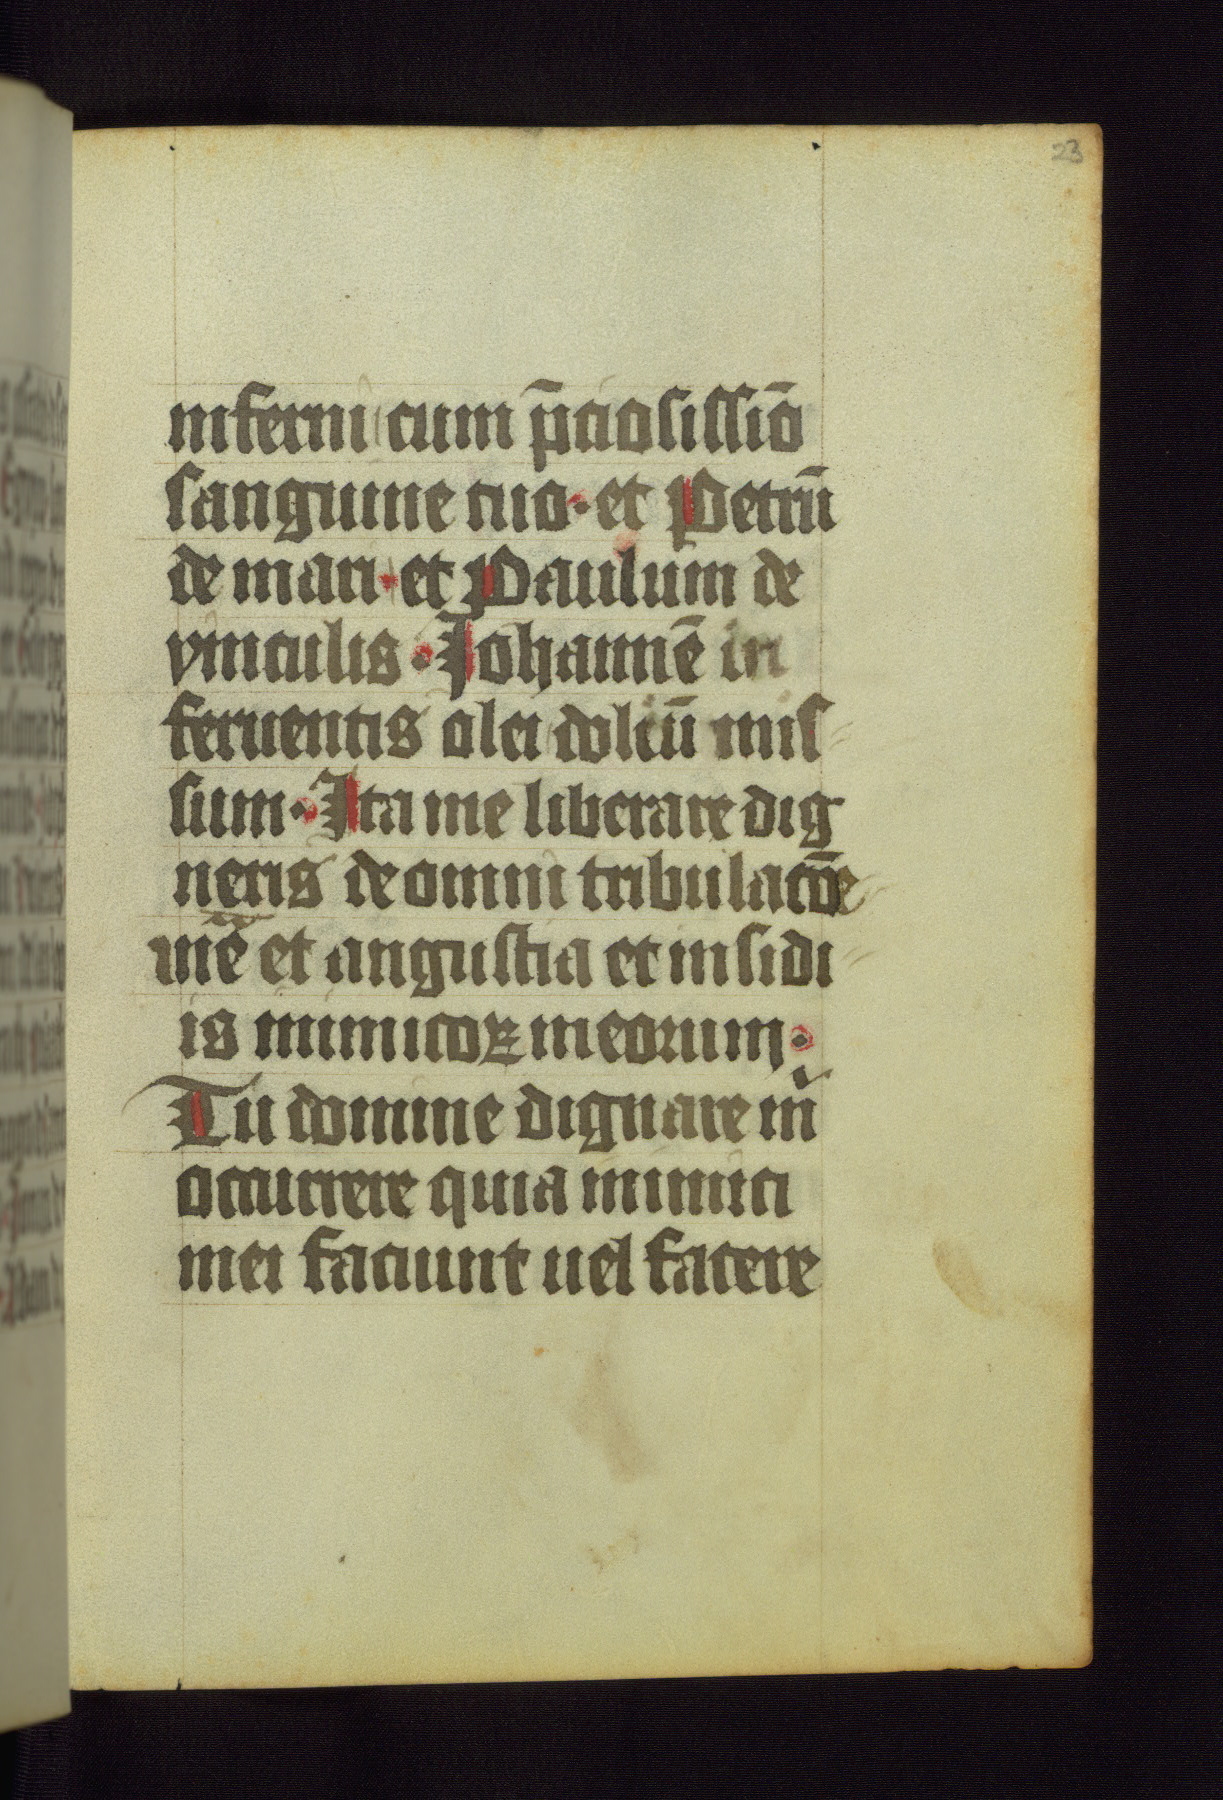 23
inferni cum p̄ciosissiō
sanguine tuo · et Petrū
de mari · et Paulum de
vinculis · Johannē in
feruentis olei doliū mis
sum · Ita me liberare dig
neris de omni tribulacōe
mē et angustia et insidi
is inimicoꝝ meorum ·
Tu domine dignare m̄
occurrere quia inimici
mei faciunt uel facere